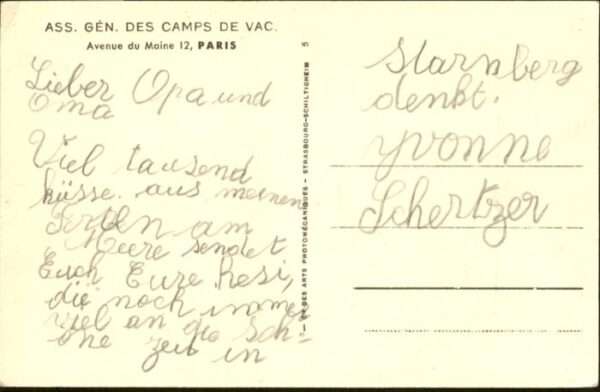 ASS. GÉN. DES CAMPS DE VAC.
Avenue du Maine 12, PARIS
Lieber Opa und
Oma
Viel tausend
küsse aus meinen
Ferien am
Meere sendet
Euch Eure Resi,
die noch immer
viel an die Sch-
öne Zeit in
Starnberg
denkt.
Yvonne
Schertzer
DES ARTS PHOTOMÉCANIQUES - STRASBOURG-SCHILTIGHEIM
5